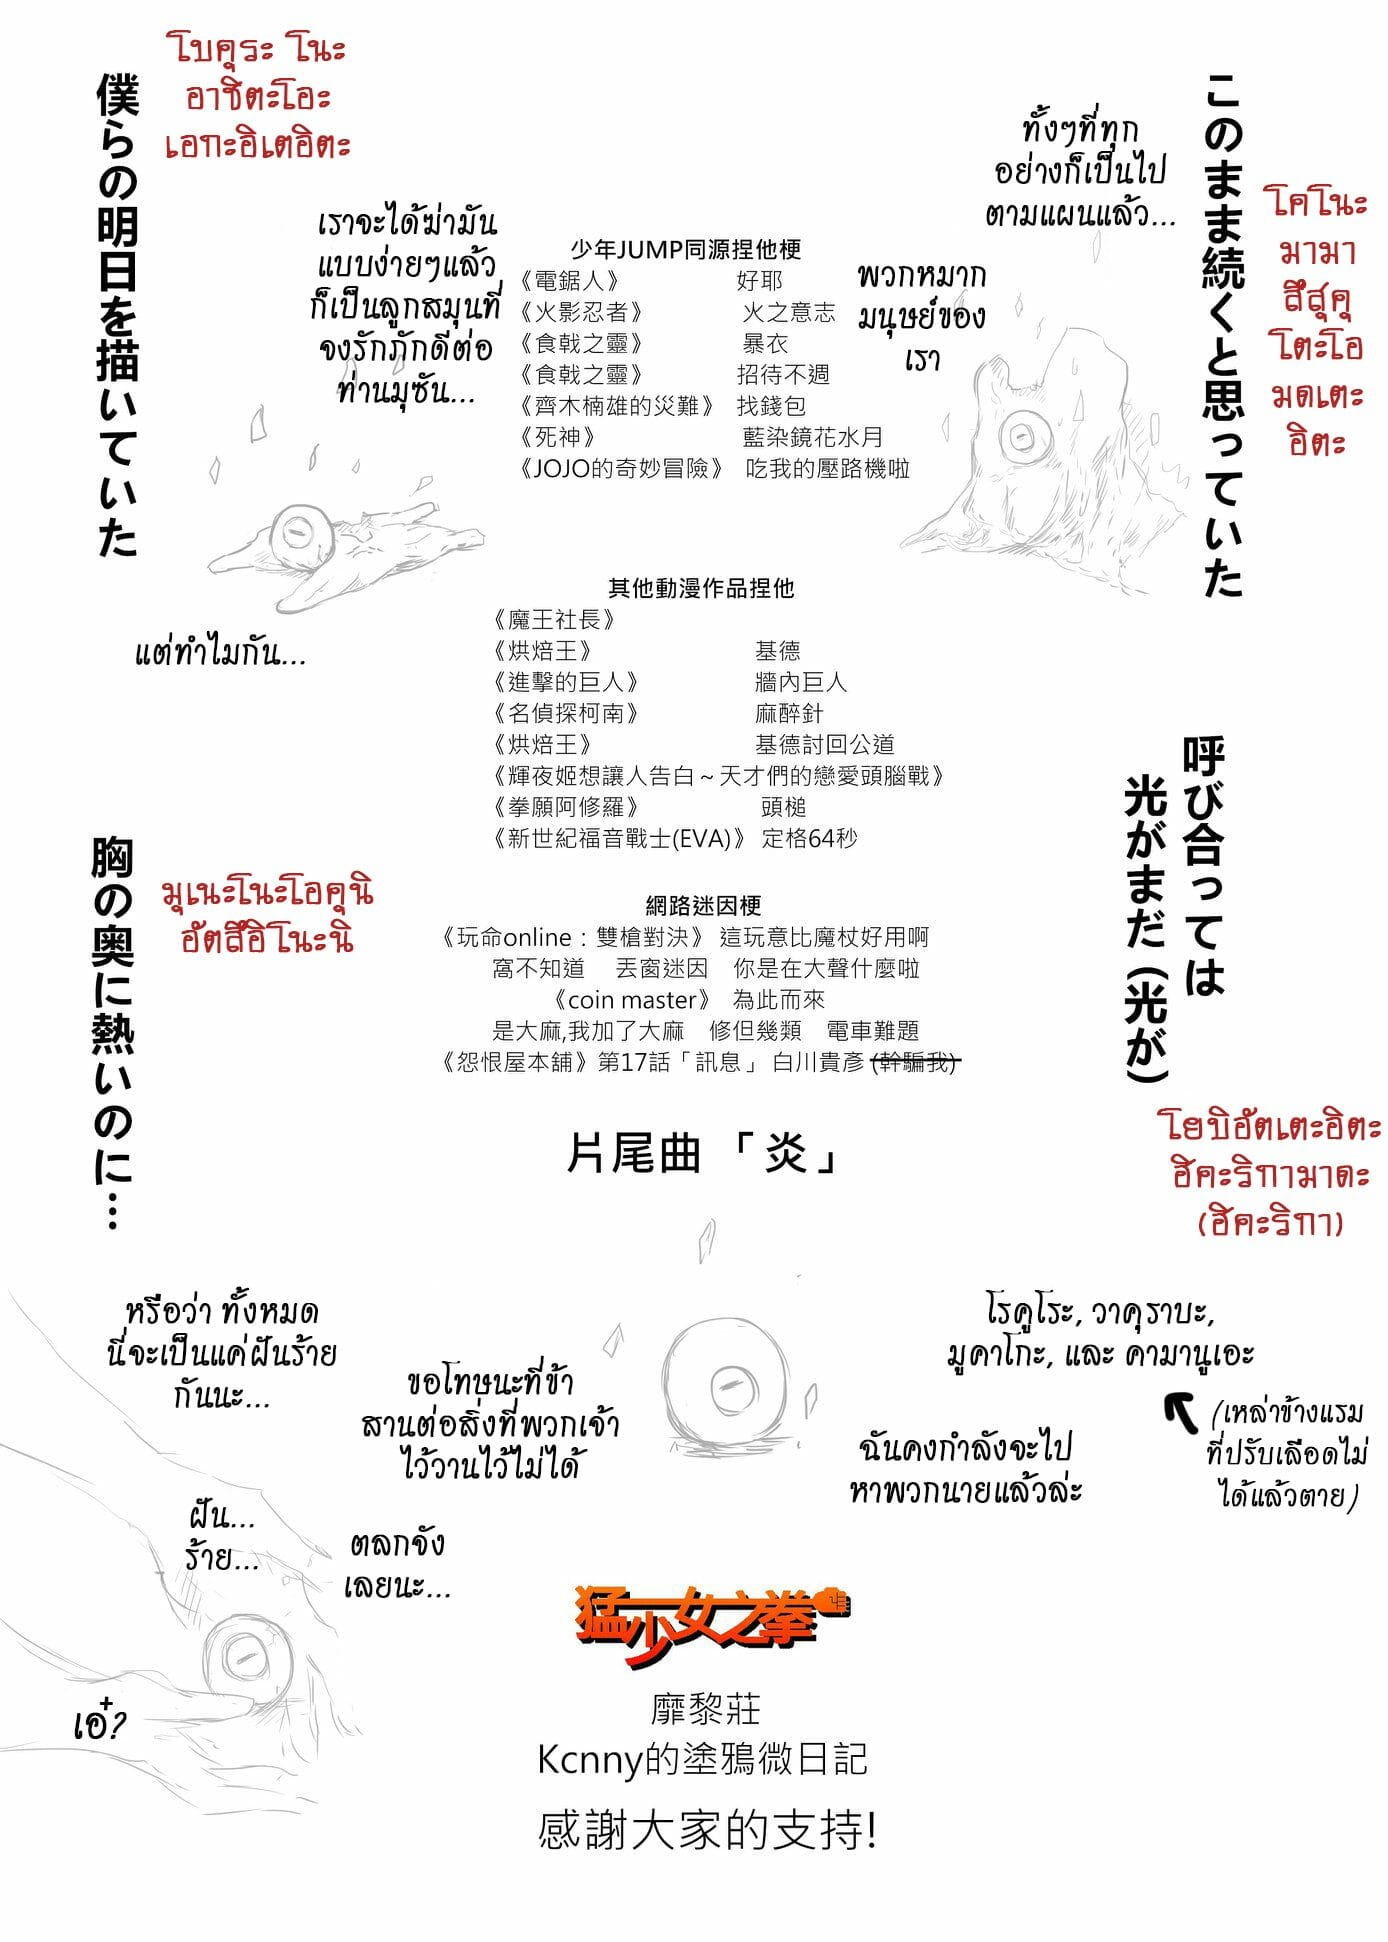 このまま続くと思っていた
โคโนะ
มามา
สึสุคุ
โตะโอ
มดเตะ
อิตะ
ทั้งๆที่ทุก
อย่างก็เป็นไป
ตามแผนแล้ว...
พวกหมาก
มนุษย์ของ
เรา
僕らの明日を描いていた
โบคุระ โนะ
อาชิตะโอะ
เอกะอิเตอิตะ
เราจะได้ฆ่ามัน
แบบง่ายๆแล้ว
ก็เป็นลูกสมุนที่
จงรักภักดีต่อ
ท่านมุซัน...
แต่ทำไมกัน...
少年JUMP同源捏他梗
《電鋸人》 好耶
《火影忍者》 火之意志
《食戟之靈》 暴衣
《食戟之靈》 招待不週
《齊木楠雄的災難》 找錢包
《死神》 藍染鏡花水月
《JOJO的奇妙冒險》 吃我的壓路機啦
其他動漫作品捏他
《魔王社長》
《烘焙王》 基德
《進擊的巨人》 牆內巨人
《名偵探柯南》 麻醉針
《烘焙王》 基德討回公道
《輝夜姬想讓人告白～天才們的戀愛頭腦戰》
《拳願阿修羅》 頭槌
《新世紀福音戰士(EVA)》 定格64秒
網路迷因梗
《玩命online：雙槍對決》 這玩意比魔杖好用啊
窩不知道 丟窗迷因 你是在大聲什麼啦
《coin master》 為此而來
是大麻,我加了大麻 修但幾類 電車難題
《怨恨屋本舖》第17話「訊息」 白川貴彥 (幹騙我)
呼び合っては
光がまだ（光が）
โยบิอัตเตะอิตะ
ฮิคะริกามาดะ
(ฮิคะริกา)
胸の奥に熱いのに…
มุเนะโนะโอคุนิ
อัตสึอิโนะนิ
片尾曲 「炎」
โรคูโระ, วาคุราบะ,
มูคาโกะ, และ คามานูเอะ
(เหล่าข้างแรม
ที่ปรับเลือดไม่
ได้แล้วตาย)
ฉันคงกำลังจะไป
หาพวกนายแล้วล่ะ
ขอโทษนะที่ข้า
สานต่อสิ่งที่พวกเจ้า
ไว้วานไว้ไม่ได้
หรือว่า ทั้งหมด
นี่จะเป็นแค่ฝันร้าย
กันนะ...
ฝัน...
ร้าย...
ตลกจัง
เลยนะ...
เอ๋?
猛少女之拳
靡黎莊
Kcnny的塗鴉微日記
感謝大家的支持!